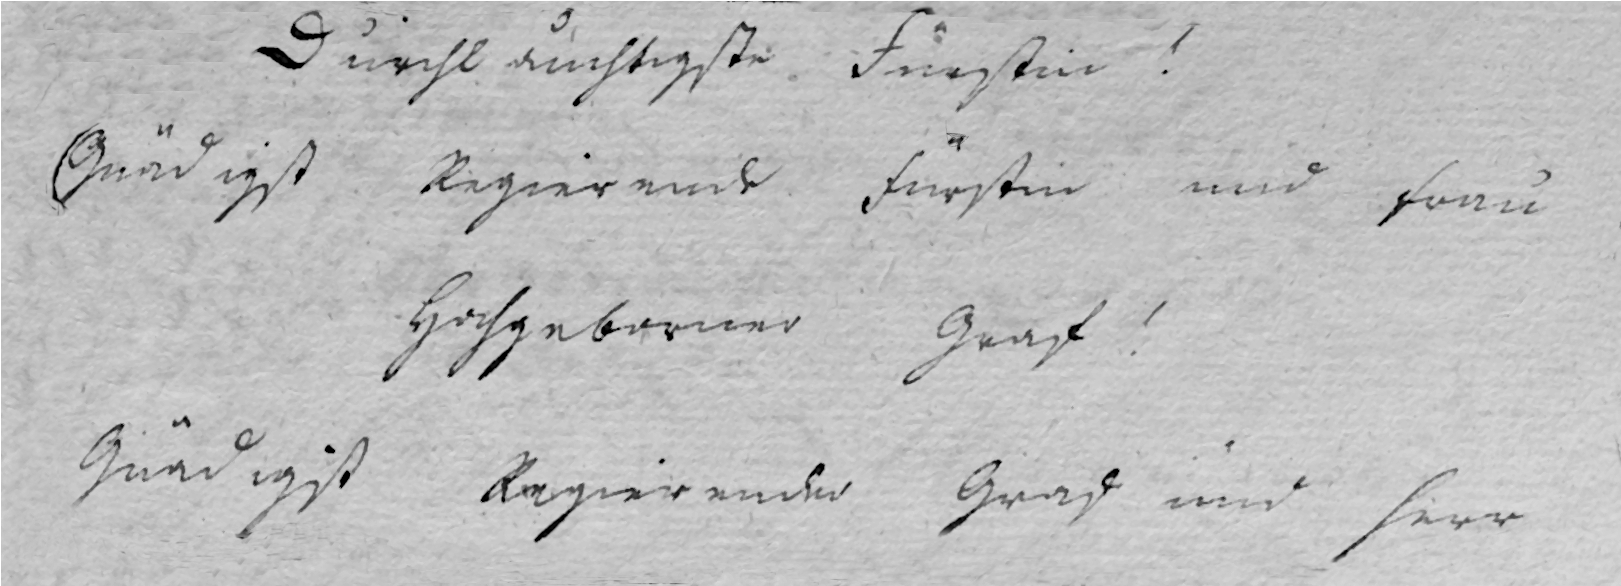 Durchläuchtigste Fürstin!
Gnädigst Regierende Fürstin und Frau
Hochgeborner Graf!
Gnädigst Regierender Graf und Herr